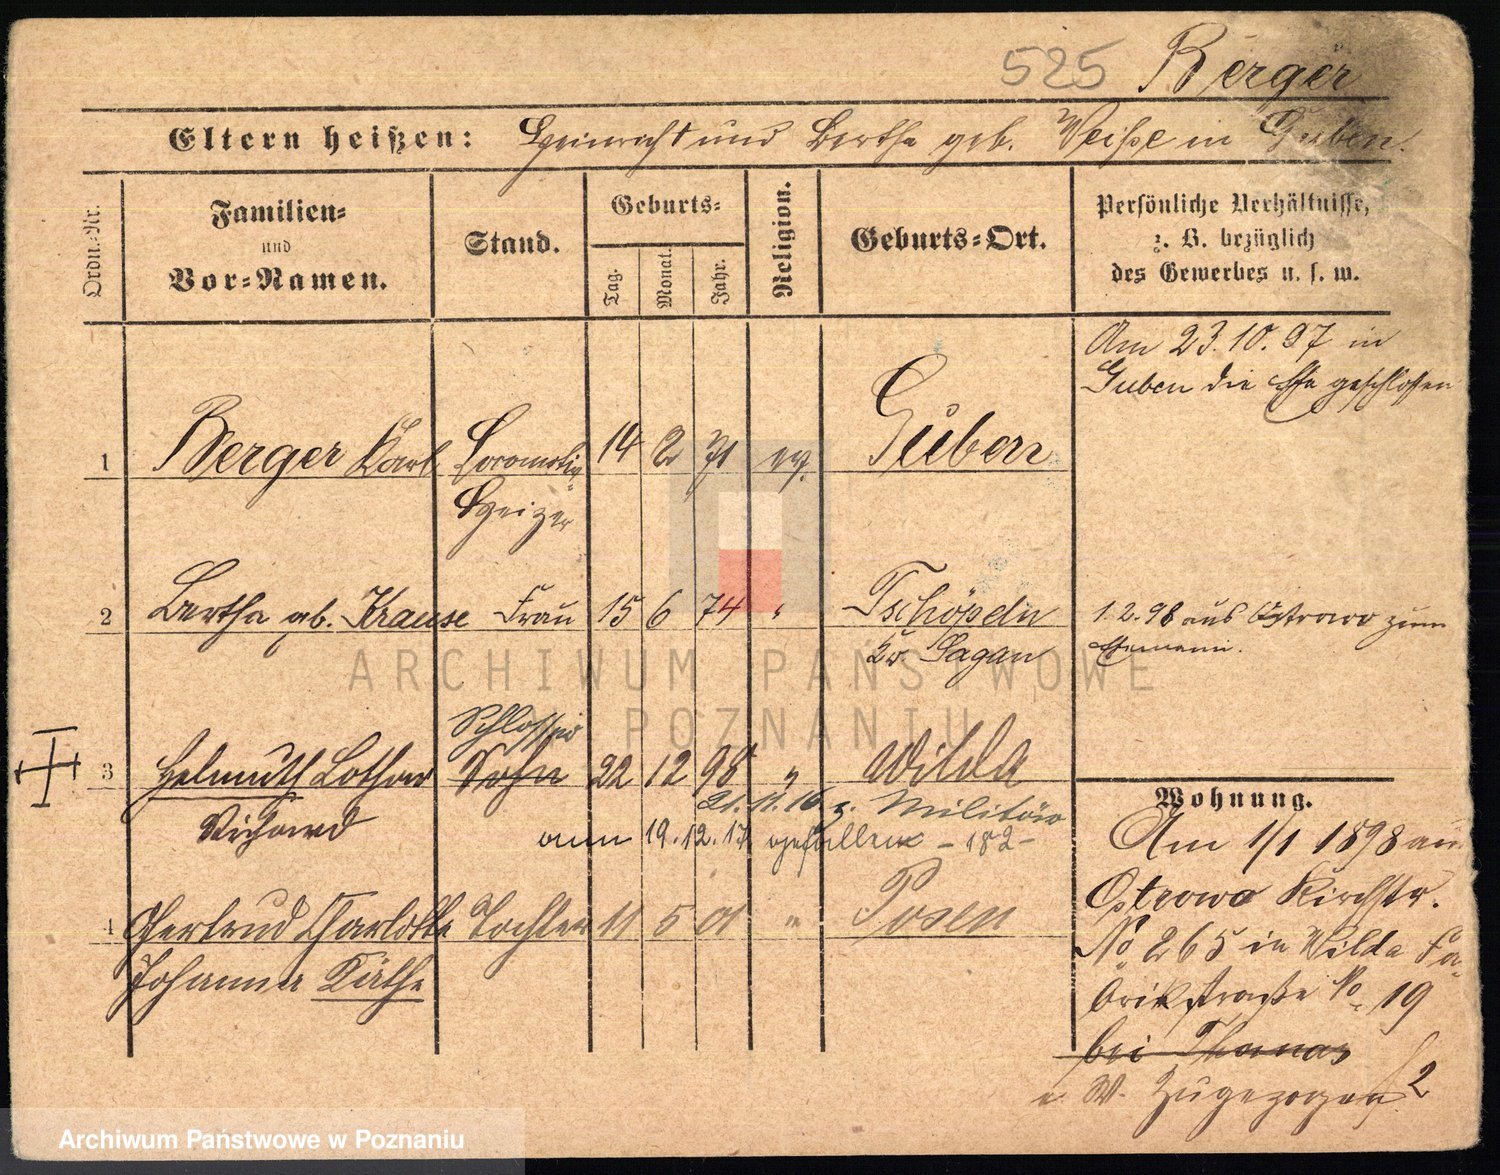 525 Berger
Eltern heißen: Heinrich und Bertha geb. Weiße in Guben.
Ordn.-Nr.
Familien-
und
Vor-Namen.
Stand.
Geburts-
Tag.
Monat.
Jahr.
Religion.
Geburts-Ort.
Persönliche Verhältnisse,
z. B. bezüglich
des Gewerbes u. s. w.
Am 23.10.97 in
Guben die Ehe geschlossen
1 Berger Karl Locomotiv- 14 2 71 ev. Guben
Heizer
2 Bertha geb. Krause Frau 15 6 74 " Tschöpeln
Kr Sagan
1.2.98 aus Ostrowo zum
Ehemann.
Schlosser
3 Helmuth Lothar Sohn 22 12 98 " Wilda
Richard
21.11.16 z. Militär
am 19.12.17 gefallen - 182 -
4 Gertrud Charlotte Tochter 11 5 01 " Posen
Johanna Käthe
Wohnung.
Am 1/1 1898 aus
Ostrowo Kirchstr.
No 265 in Wilda Fa-
brikstraße No 19
bei Thomas
W. Zugezogen 2
ARCHIWUM PAŃSTWOWE
W POZNANIU
Archiwum Państwowe w Poznaniu